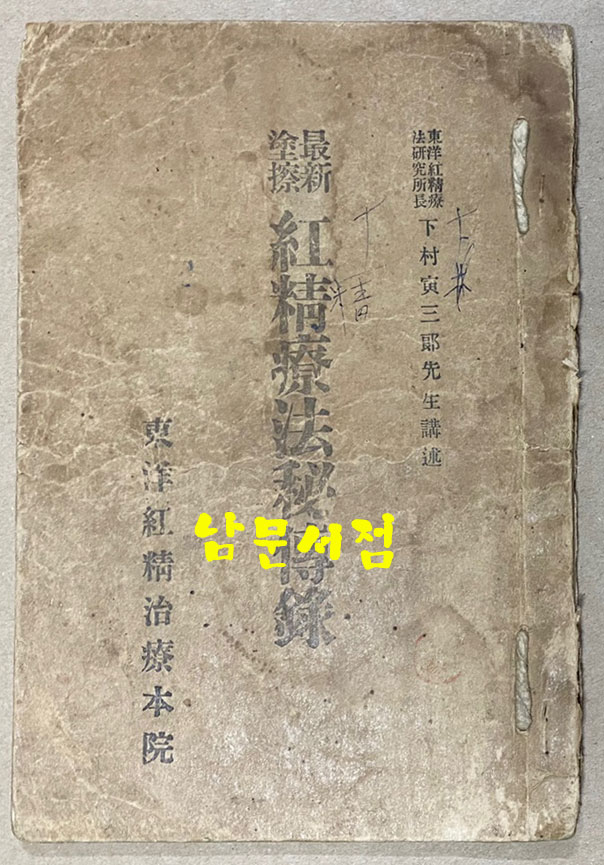 東洋紅精療
法研究所長
下村寅三郞先生講述
最新
塗擦
紅精療法秘傳錄
東洋紅精治療本院
남문서점